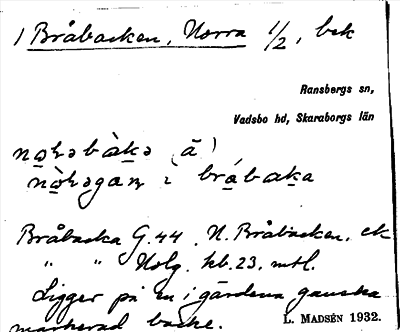 1 Bråbacken, Norra 1/2, bek
Ransbergs sn,
Vadsbo hd, Skaraborgs län
(ā)
i bråbaka
Bråbacka G.44. N. Bråbacken. ek
" " Holg. kb. 23. mtl.
Ligger på en i gårdena ganska
markerad backe.
L. MADSÉN 1932.